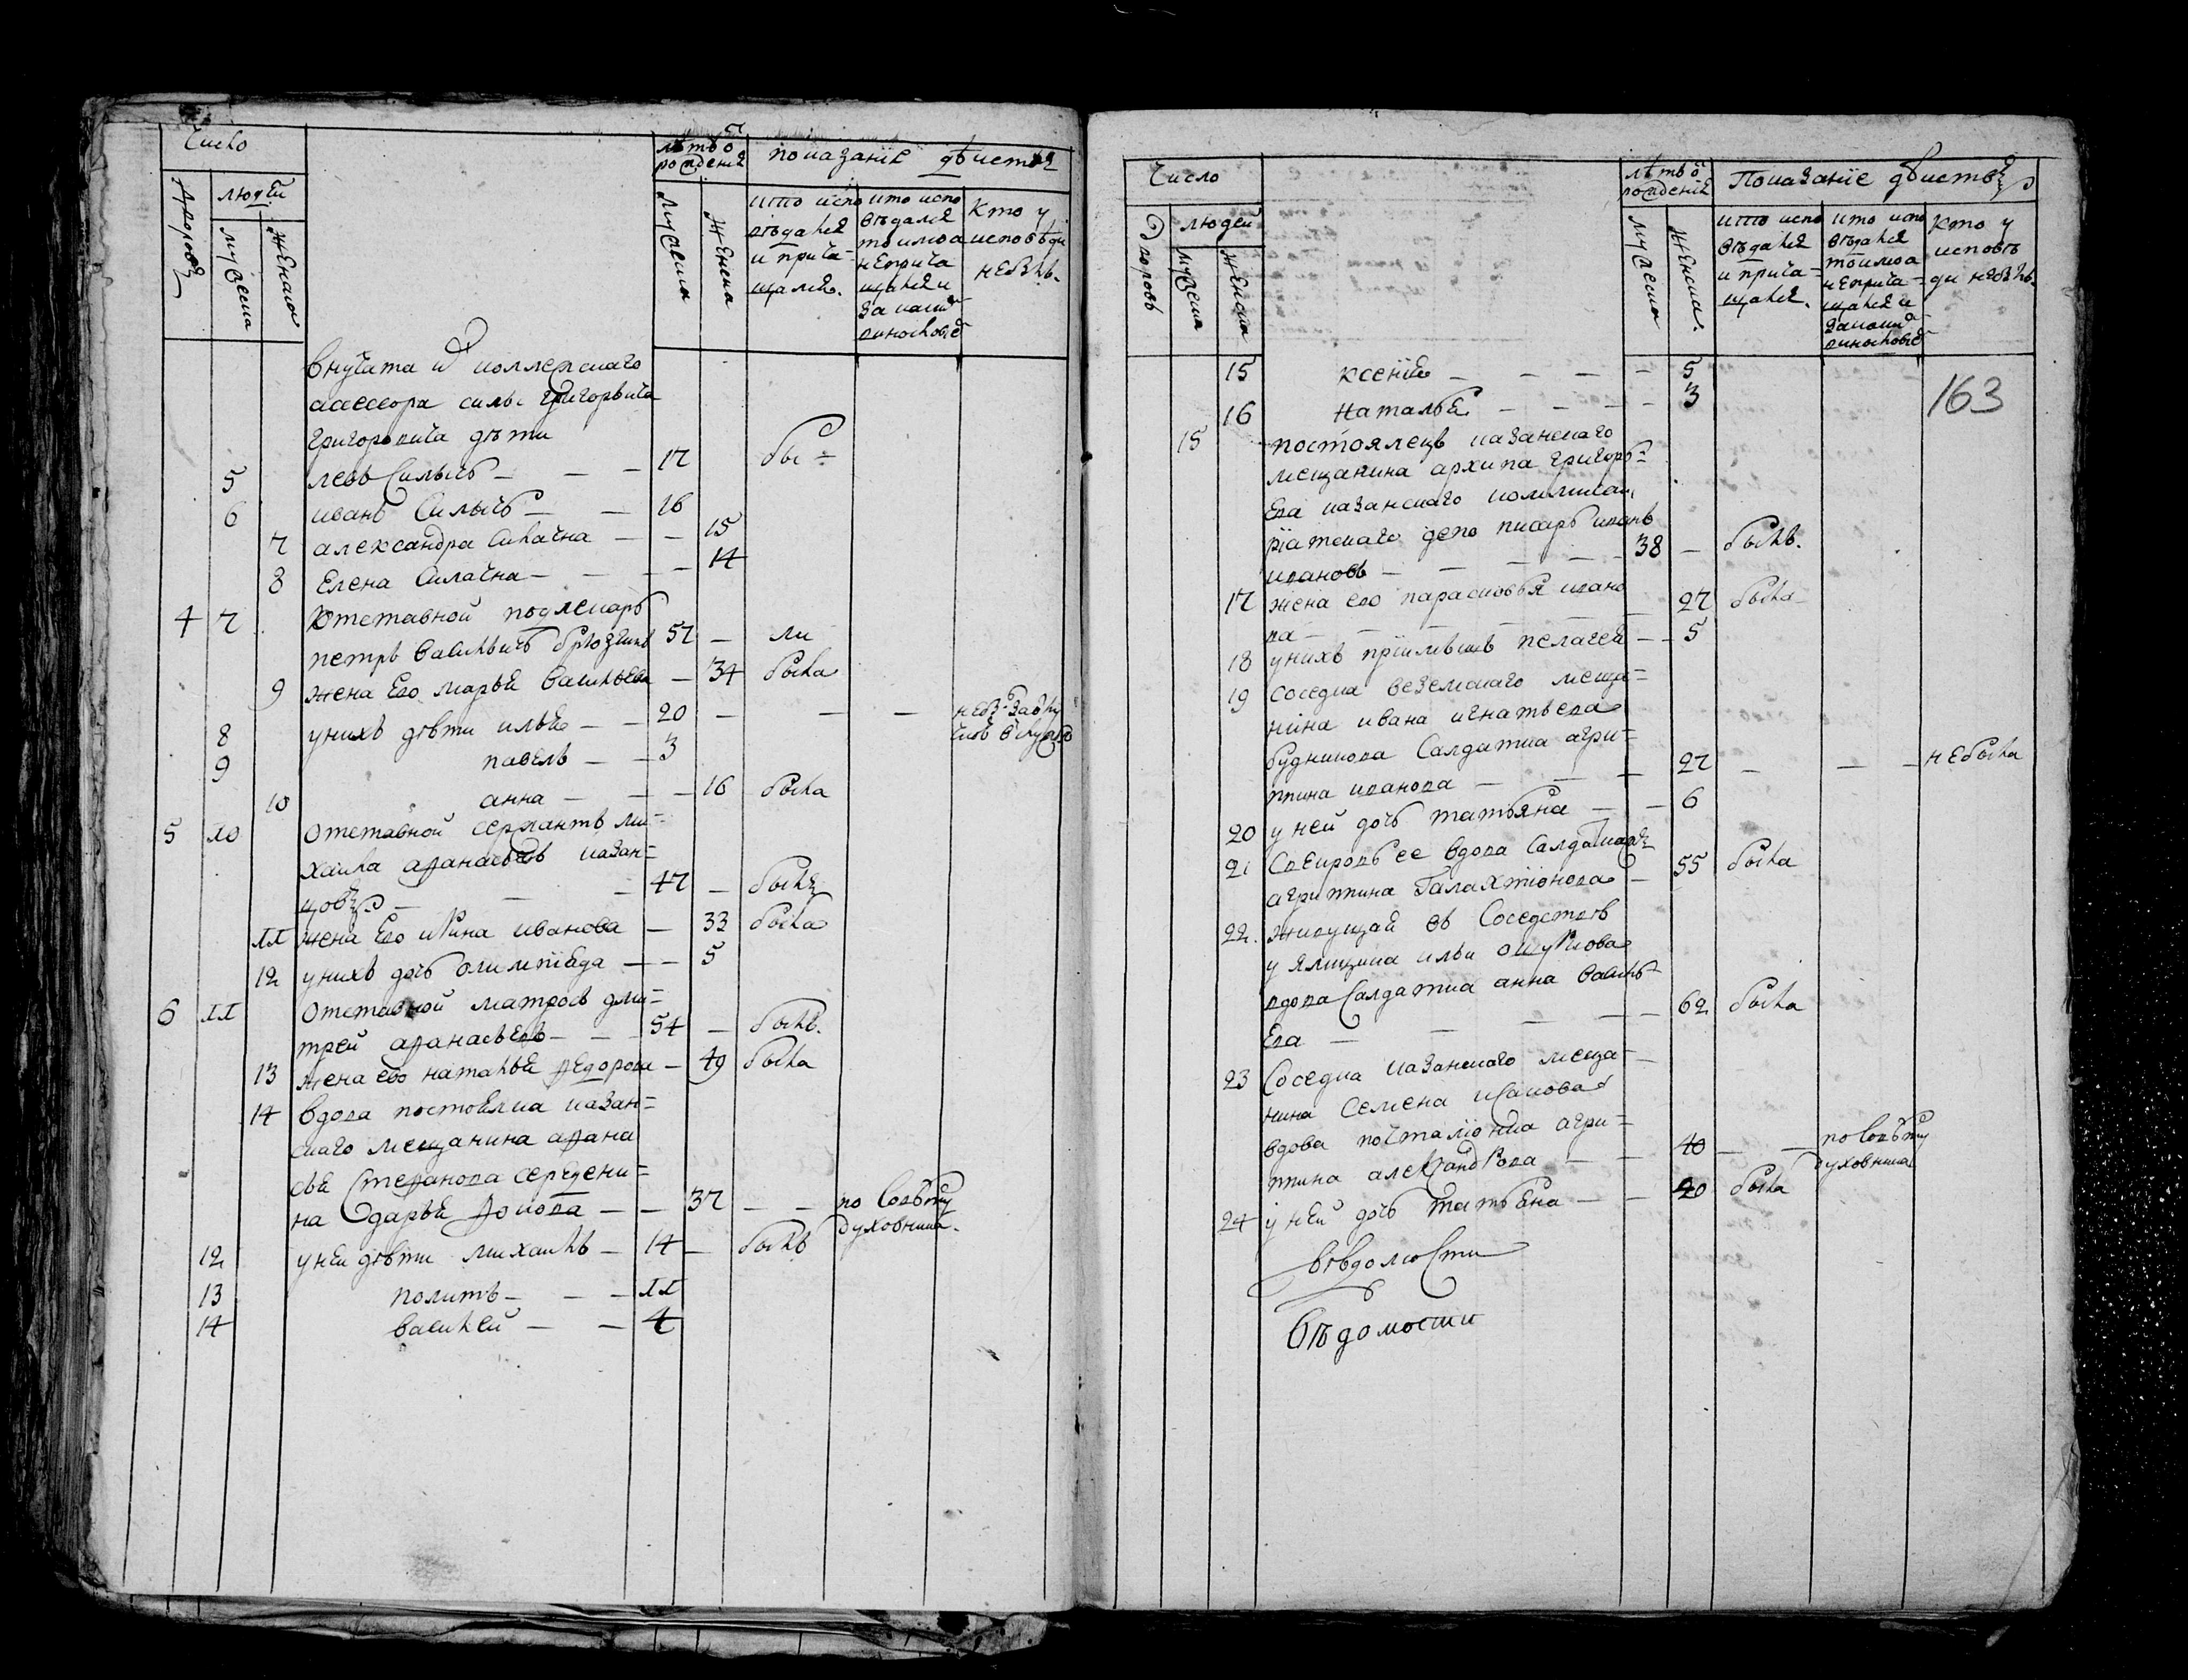 Число
лѣтъ ѿ
рожденія
показаніе дѣиствъ
Дворовъ
людеи
мужеска
женска
мужеска
женска
кто испо
вѣдался
и прича-
щался.
кто испо
вѣдался
токмо а
неприча
щался и
за какі
винословіе
Кто у
исповѣди
небылъ.
внучата коллежскаго
асессора силы григорьича
григоровича дѣти
5 левъ Силычъ — — — 17 бы
6 иванъ Силычъ — — 16
7 александра Силична — — 15
8 Елена Силична — — — 14
4 7 Отставной подлекарь
петръ Васильвичъ 57 — ли
9 жена Его марья Васильева — 34 была
8 унихъ дѣти илья — — 20 — — —
9 павелъ — — 3
10 анна — — — 16 была
5 10 Отставной сержантъ ми=
хаила афанасьевъ казан=
цовъ — — — 47 — былъ
11 жена Его ирина иванова — 33 была
12 унихъ дочь олимпіада — — 5
6 11 Отставной матросъ дми=
трей афанасьевъ — — — 54 — былъ.
13 жена ево наталья федорова — 49 была
14 вдова постоялка казан=
скаго мещанина афана
сья Степанова
на дарья фокова — — 37 — — по Совѣту
духовника.
12 у неи дѣти михаилъ — 14 — былъ
13 политъ — — — 11
14 василей — — 4
Число
лѣтъ ѿ
рожденія
Показаніе дѣиствъ
Дворовъ
людей
мужеска
женска
мужеска
женска.
кто испо
вѣдался
и прича=
щался.
кто испо
вѣдался
токмо а
неприча=
щался и
закакі
винословіе
Кто у
исповѣ
ди небылъ.
163
15 ксенія — — — — 5
16 Наталья — — — — 3
15 постоялецъ казанскаго
мещанина архипа григорь=
Ева казанскаго коммиса
ріатскаго депо писарь иванъ
ивановъ — — — — 38 — былъ.
17 жена его парасковья ивано
ва — — — — — 27 была
18 унихъ пріимышъ пелагея — — 5
19 соседка меща=
нина ивана игнатьева
рудникова Салдатка агри=
пина иванова — — — 27 — — — небыла
20 у ней дочь татьяна — — 6
21 Свекровь ее вдова Салдатка
агрипина Галахтіонова — 55 была
22. живущая въ Соседствѣ
у ямщика ильи
вдова Салдатка анна василь=
Ева — — — — — 62 была
23 Соседка казанскаго меща=
нина семена исакова
вдова почталіонка агри=
пина александрова — — 40 — — по Совѣту
духовника
24 у неи дочь татьяна — — 20 была
вѣдомости
Вѣдомости